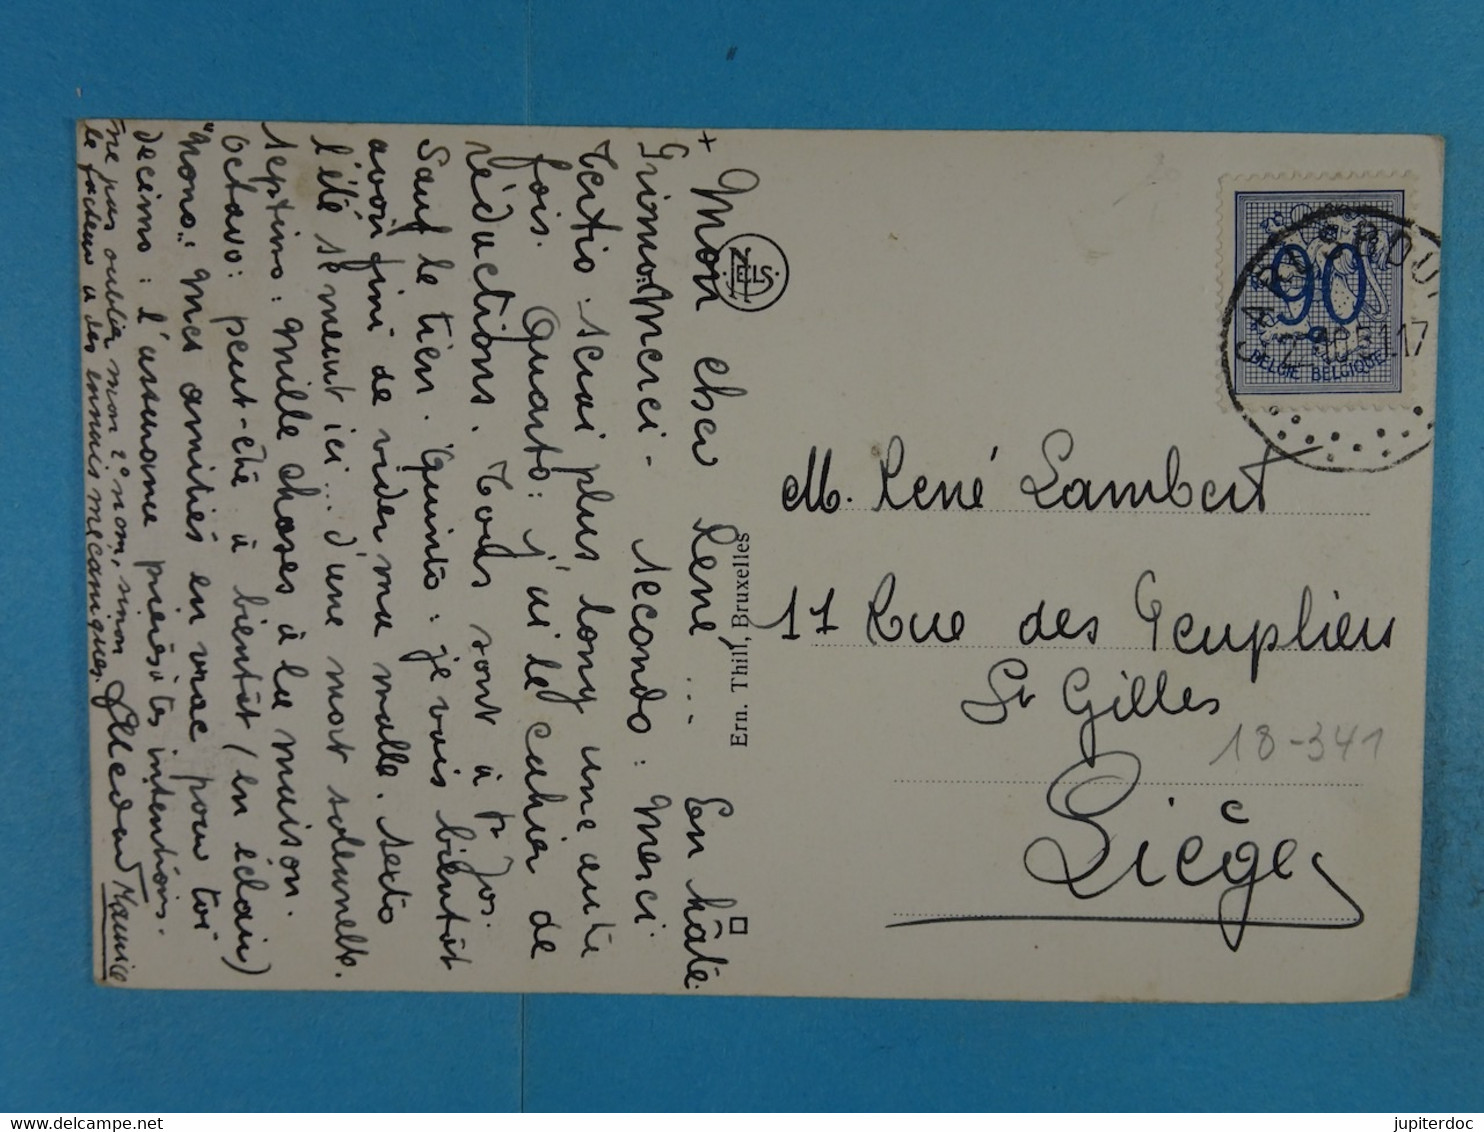 + Mon cher René... En hâte.
Primo: Merci - secondo: merci
tertio: serai plus long une autre
fois. Quarto: j'ai le cahier de
rédactions. Tous sont à p. Jos.
sauf le tien. Quinto: je vais bientôt
avoir fini de vider ma malle. Sexto
l'été se meurt ici... d'une mort solennelle.
septimo: mille choses à la maison.
octavo: peut-être à bientôt (en éclair)
"Mono": mes amitiés en vrac pour toi
decimo: l'assurance prières à tes intentions.
ne pas oublier mon 2e nom, sinon Medard Maurice
le facteur a des ennuis mécaniques.
NELS
Ern. Thill, Bruxelles
90
BELGIE BELGIQUE
M. René Lambert
11 Rue des Peupliers
St Gilles
18-341
Liège
delcampe.net
jupiterdoc